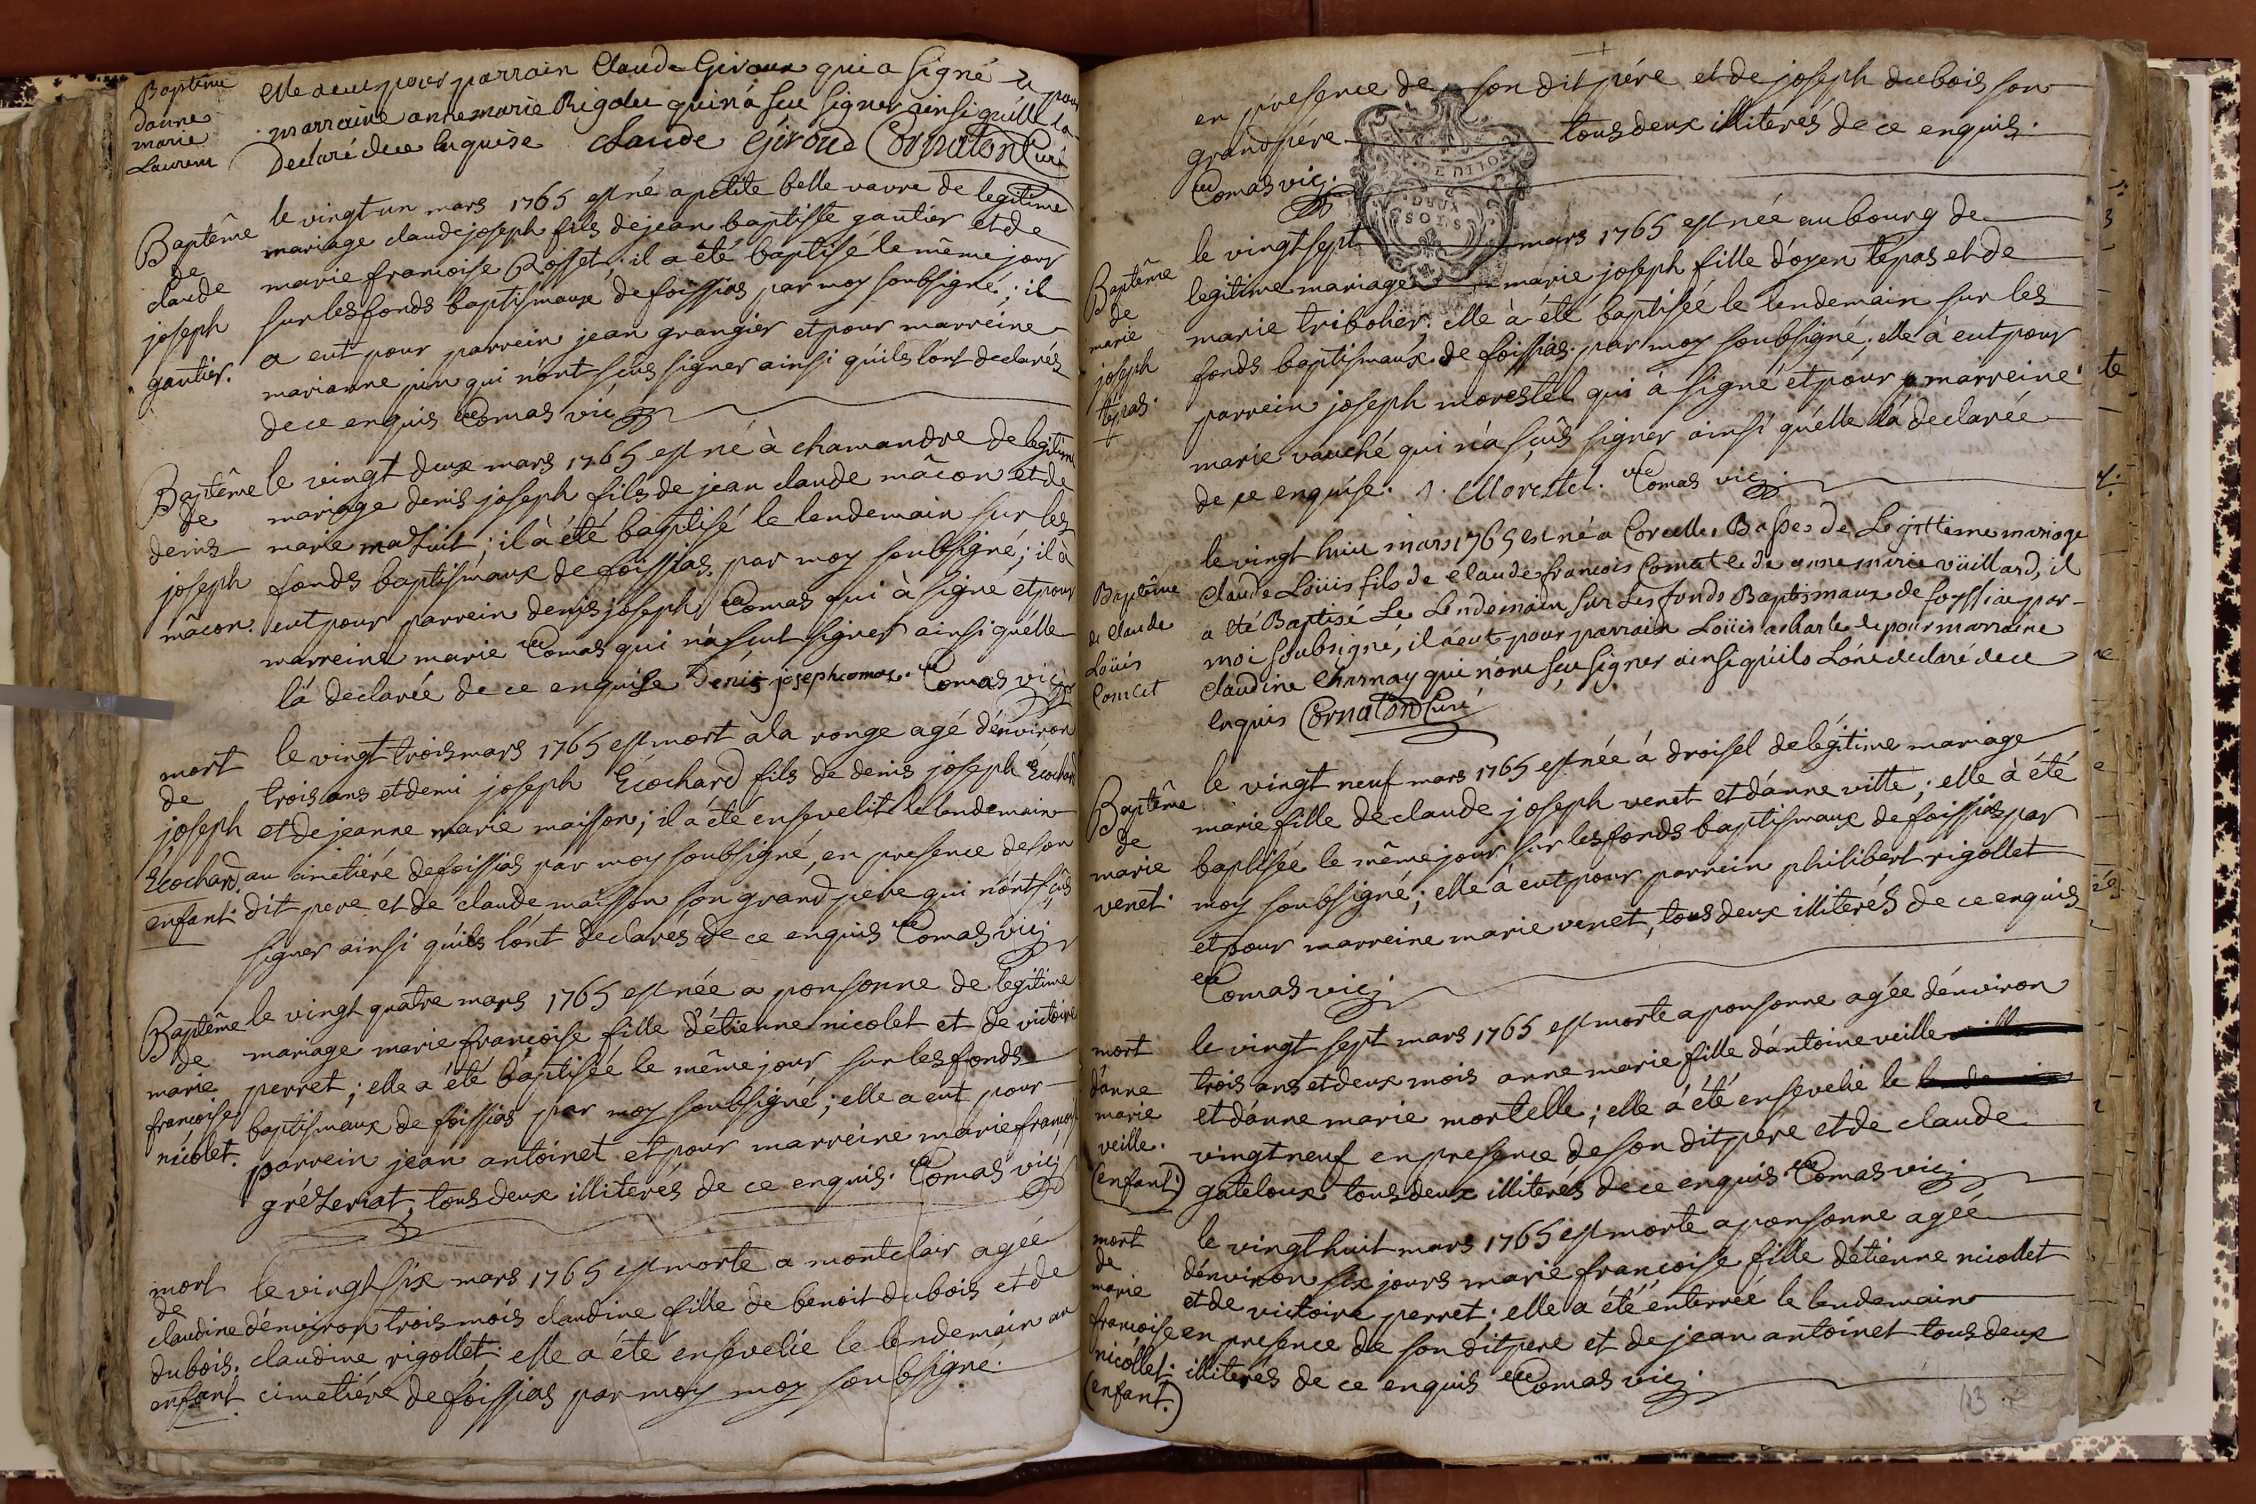 Baptême
danne
marie
Laurent
elle a eut pour parrain Claude Giroux qui a signé et pour
marraine anne marie Rigolet qui n'a sçu signer ainsi qu'elle la
declaré de ce enquise claude Giroud Cornaton Curé
Baptême
de
claude
joseph
gautier.
le vingt un mars 1765 est né a petite belle vavre de legitime
mariage claude joseph fils de jean baptiste gautier et de
marie francoise Rosset; il a été baptisé le même jour
sur les fonds baptismaux de foissias par moy soubsigné; il
a eut pour parrein jean grangier et pour marreine
marianne juin qui n'ont sçus signer ainsi qu'ils l'ont declarés
de ce enquis Comas vic.
Baptême
de
denis
joseph
mâcon.
le vingt deux mars 1765 est né à chamandre de legitime
mariage denis joseph fils de jean claude mâcon et de
marie ; il à été baptisé le lendemain sur les
fonds baptismaux de foissias. par moy soubsigné; il à
eut pour parrein denis joseph Comas qui à signé et pour
marreine marie Comas qui n'a sçut signer ainsi qu'elle
l'à declarée de ce enquise Denis joseph comas. Comas vic.
mort
de
joseph
Ecochard.
enfant.
le vingt trois mars 1765 est mort à la ronge agé d'environ
trois ans et demi joseph Ecochard fils de denis joseph Ecochard
et de jeanne marie maisson; il a été ensevelit le lendemain
au cimetiére de foissias par moy soubsigné, en presence de son
dit pere et de claude maisson son grand pere qui n'ont sçûs
signer ainsi qu'ils l'ont declarés de ce enquis Comas vic.
Baptême
de
marie
francoise
nicolet.
le vingt quatre mars 1765 est née a ponsonne de legitime
mariage marie françoise fille d'étienne nicolet et de victoire
perret; elle a été baptisée le même jour sur les fonds
baptismaux de foissias par moy soubsigné; elle a eut pour
parrein jean antoinet et pour marreine marie françoise
; tous deux illiterés de ce enquis. Comas vic.
mort
de
claudine
dubois.
enfant
le vingt six mars 1765 est morte a montclair agée
d'environ trois mois claudine fille de benoit dubois et de
claudine rigollet. elle a été ensevelie le lendemain au
cimetiére de foissias par moy moy soubsigné.
en presence de son dit pére et de joseph dubois son
grand pére tous deux illiterés de ce enquis.
Comas vic.
DEUX
SOLS
Baptême
de
marie
joseph
tépas.
le vingt sept mars 1765 est née au bourg de
legitime mariage marie joseph fille d'oyen tépas et de
marie tribolier. elle à été baptisée le lendemain sur les
fonds baptismaux de foissias. par moy soubsigné; elle à eut pour
parrein joseph morestel qui à signé et pour marreine
marie vauché qui n'a sçûs signer ainsi qu'elle l'a declarée
de ce enquise. Morestel. Comas vic.
Baptême
de Claude
Loüis
Comcet
le vingt huit mars 1765 est né a Corcelles Basses de Legittime mariage
Claude Loüis fils de Claude francois et de anne marie vüillard, il
a été Baptisé Le Lendemain Sur Les fonds Baptismaux de par
moi soubsigné, il a eut pour parrain Loüis acharle et pour marraine
Claudine Charnay qui n'ont sçu signer ainsi qu'ils L'ont declaré de ce
enquis Cornaton Curé
Baptême
de
marie
venet.
le vingt neuf mars 1765 est née á droisel de légitime mariage
marie fille de claude joseph venet et d'anne ville; elle à été
baptisée le même jour sur les fonds baptismaux de foissias par
moy soubsigné; elle à eut pour parrein philibert rigollet
et pour marreine marie venet, tous deux illiterés de ce enquis
Comas vic.
mort
d'anne
marie
veille.
(enfant.)
le vingt sept mars 1765 est morte a ponsonne agée d'environ
trois ans et deux mois anne marie fille d'antoine veille
et d'anne marie mortelle; elle á été ensevelie le
vingt neuf en presence de son dit pére et de claude
gateloux tous deux illiterés de ce enquis. Comas vic.
mort
de
marie
francoise
nicollet.
(enfant.)
le vingt huit mars 1765 est morte a ponsonne agée
d'environ six jours marie françoise fille d'étienne nicollet
et de victoire perret; elle a été enterrée le lendemain
en presence de son dit pere et de jean antoinet tous deux
illiterés de ce enquis Comas vic.